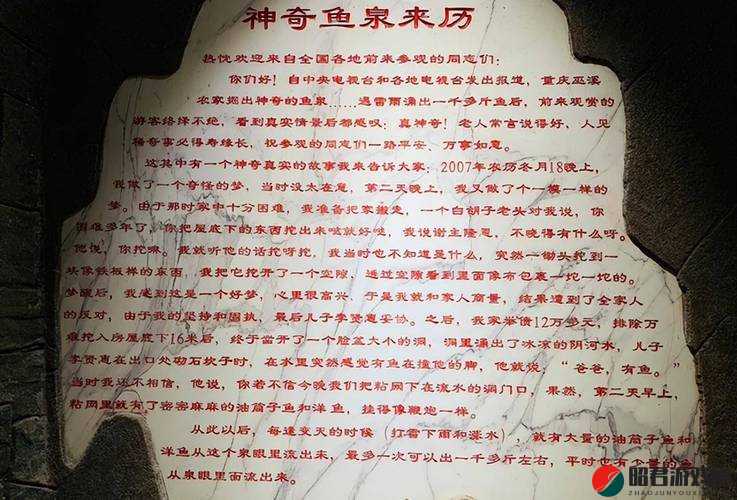 神奇鱼泉来历
热忱欢迎来自全国各地前来参观的同志们：
你们好！自中央电视台和各地电视台发出报道，重庆巫溪
农家挖出神奇的鱼泉……遇雷雨涌出一千多斤鱼后，前来观赏的
游客络泽不绝，看到真实情景后都感叹：真神奇！老人常言说得好，人见
稀奇事必得寿缘长，祝参观的同志们一路平安、万事如意。
这其中有一个神奇真实的故事我来告诉大家：2007年农历冬月18晚上，
我做了一个奇怪的梦，当时没太在意，第二天晚上，我又做了个一模一样的
梦。由于那时家中十分困难，我准备把家搬走，一个白胡子老头对我说，你
困难多年了，你把屋底下的东西挖出来哒就好哒，我说谢主隆恩，不晓得有什么呀。
他说，你挖嘛。我就听他的话挖呀挖，我当时也不知道是什么，突然一锄头挖到一
块像铁板样的东西，我把它挖开了一个空隙，通过空隙看到里面像布包裹一坨一坨的。
梦醒后，我感到这是一个好梦，心里很高兴，于是我就和家人商量，结果遭到了全家人
的反对，由于我的坚持和固执，最后儿子李贤惠妥协。之后，我家举债12万多元，排除万
难挖入房屋底下16米后，终于凿开了一个脸盆大小的洞，洞里涌出了冰凉的阴河水，儿子
李贤惠在出口处砌石坎子时，在水里突然感觉有鱼在撞他的脚，他就说，“爸爸，有鱼。”
当时我还不相信，他说，你若不信今晚我们把粘网下在流水的洞门口，果然，第二天早上，
粘网里就有了密密麻麻的油筒子鱼和洋鱼，挂得像鞭炮一样。
从此以后，每逢变天的时候（打雷下雨和涨水），就有大量的油筒子鱼和
洋鱼从这个泉眼里流出来，最多一次可以出一千多斤左右，平时也有少量的鱼
从泉眼里面流出来。
昭君游戏
ZHAOJUNYOUXI